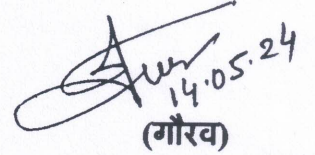 14.05.24
(गौरव)